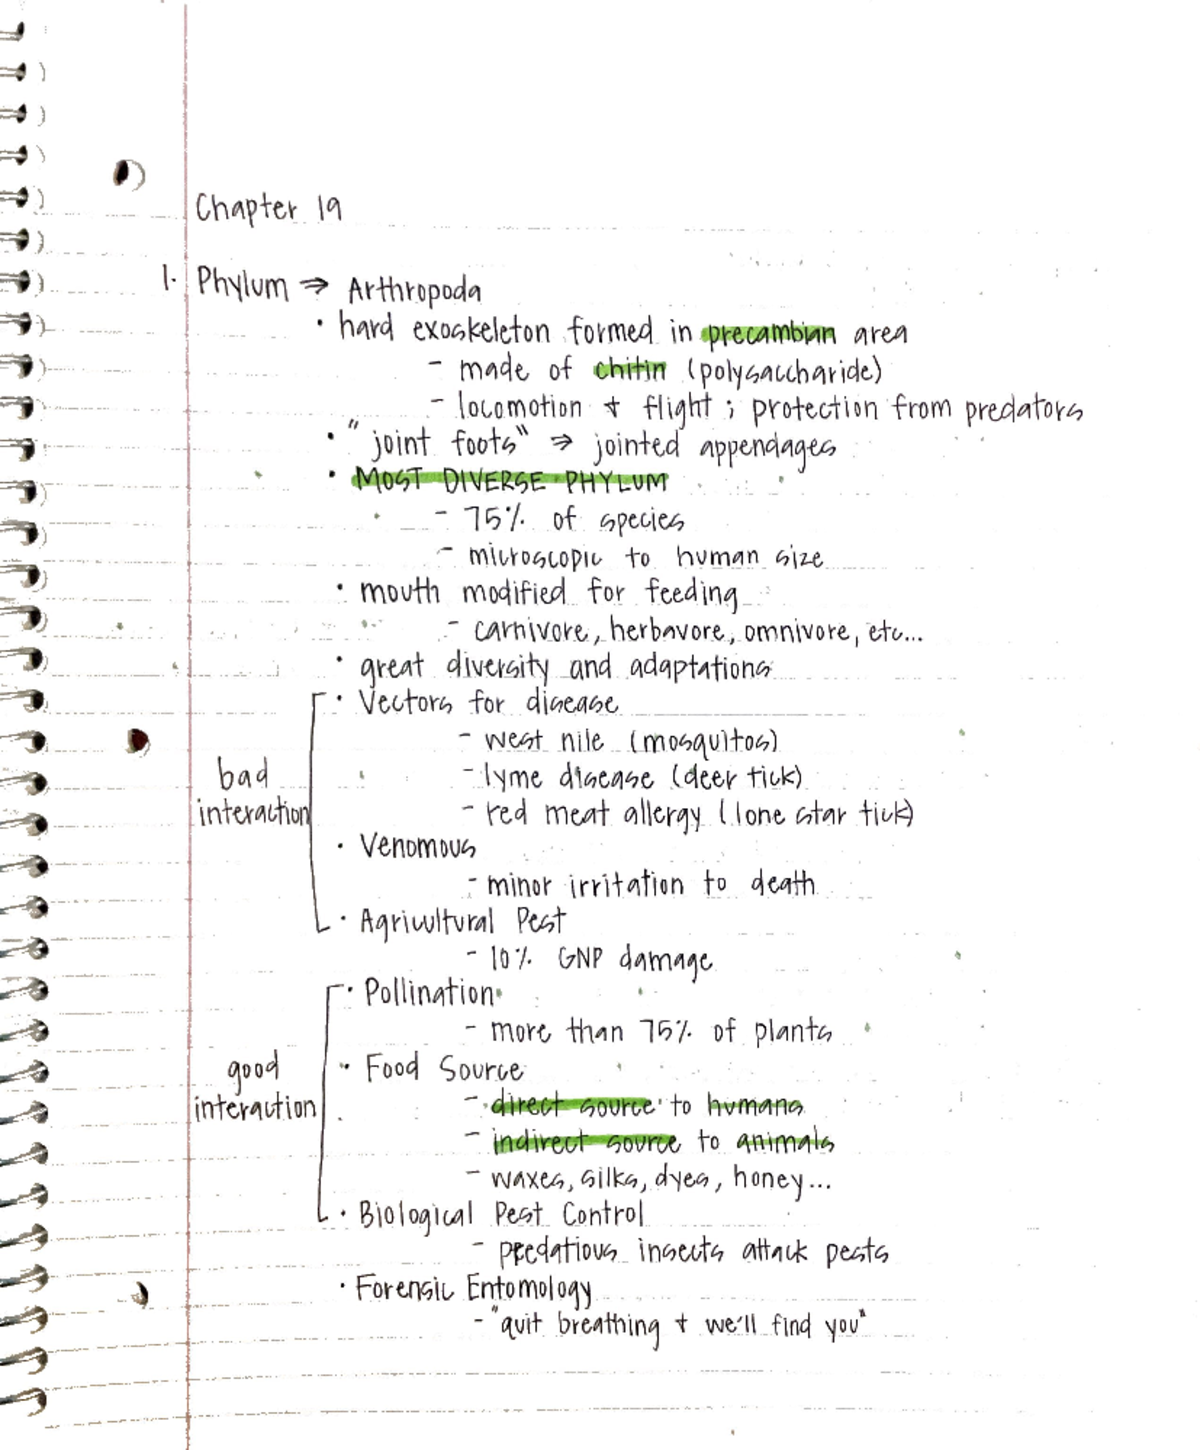 Chapter 19
1. Phylum ⇒ Arthropoda
· hard exoskeleton formed in precambian area
- made of chitin (polysaccharide)
- locomotion + flight ; protection from predators
· "joint foots" ⇒ jointed appendages
· MOST DIVERSE PHYLUM
- 75% of species
- microscopic to human size
· mouth modified for feeding
- carnivore, herbavore, omnivore, etc...
· great diversity and adaptations
· Vectors for disease
- west nile (mosquitos)
bad
- lyme disease (deer tick)
interaction
- red meat allergy (lone star tick)
· Venomous
- minor irritation to death
· Agricultural Pest
- 10% GNP damage
· Pollination
- more than 75% of plants
good
· Food Source
interaction
- direct source to humans
- indirect source to animals
- waxes, silks, dyes, honey...
· Biological Pest Control
- predatious insects attack pests
· Forensic Entomology
- "quit breathing + we'll find you"